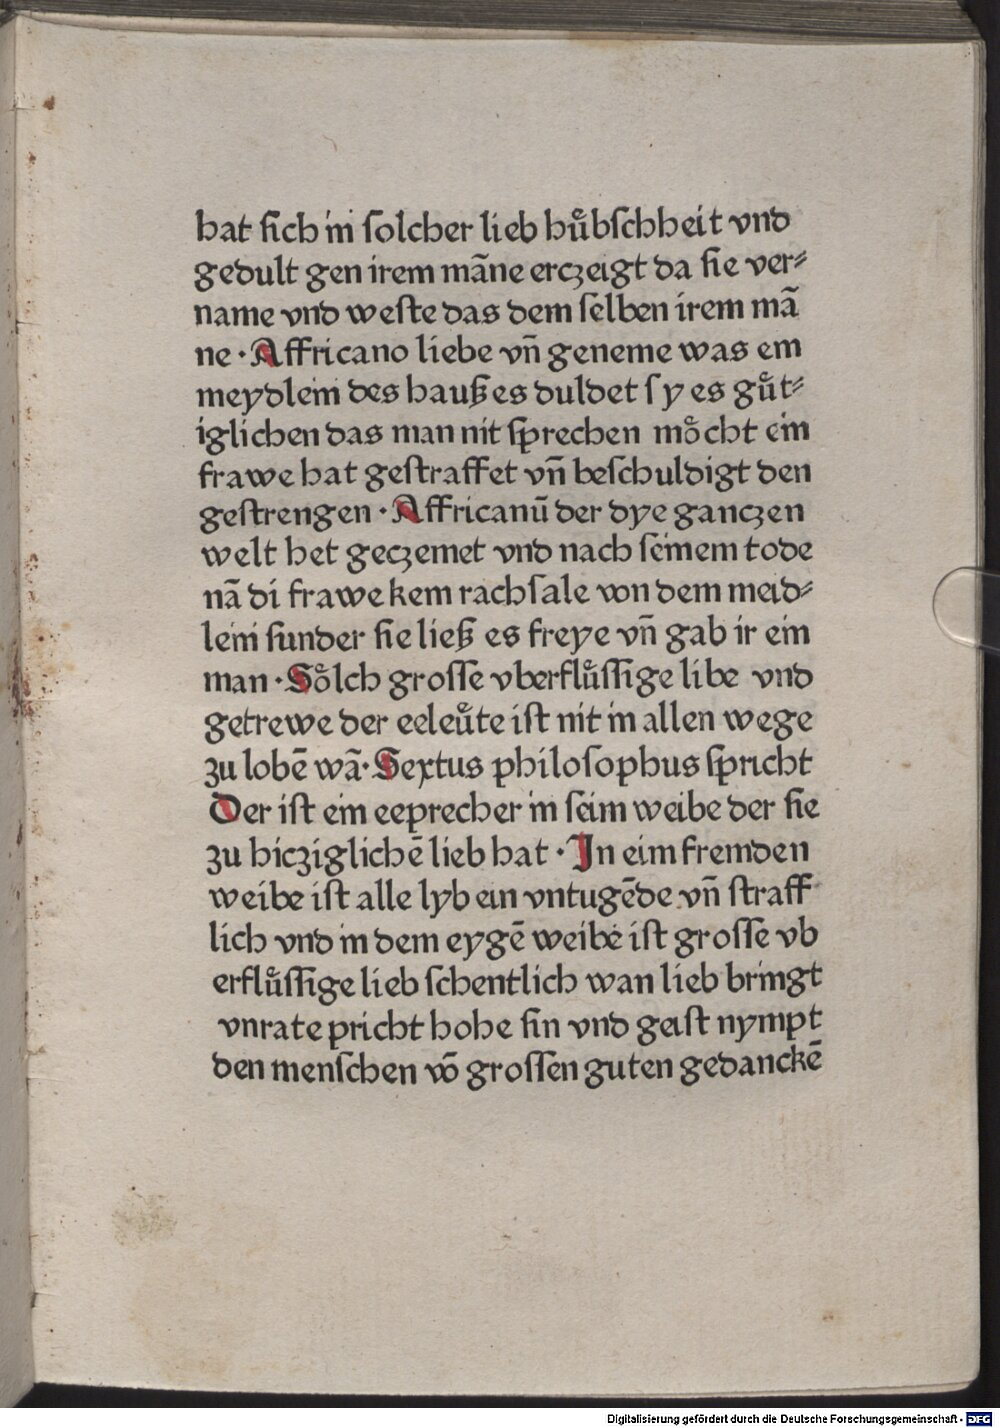 hat ſich in ſolcher lieb huͤbſchheit vnd
gedult gen irem mãne erczeigt da ſie ver⸗
name vnd weſte das dem ſelben irem mã
ne · Affricano liebe vñ geneme was ein
meydlein des hauß es duldet ſy es guͤt⸗
iglichen das man nit ſprechen moͤcht ein
frawe hat geſtraffet vñ beſchuldigt den
geſtrengen · Affricanū der dye ganczen
welt het geczemet vnd nach ſeinem tode
nã di frawe kein rachſale von dem meid⸗
lein ſunder ſie ließ es freye vñ gab ir ein
man · Soͤlch groſſe vberfluͤſſige libe vnd
getrewe der eeleuͤte iſt nit in allen wege
zu lobē wã· Sextus philoſophus ſpricht
Der iſt ein eeprecher in ſeim weibe der ſie
zu hicziglichē lieb hat · In eim fremden
weibe iſt alle lyb ein vntugēde vñ ſtraff
lich vnd in dem eygē weibe iſt groſſe vb
erfluͤſſige lieb ſchentlich wan lieb bringt
vnrate pricht hohe ſin vnd geiſt nympt
den menſchen võ groſſen guten gedanckē
Digitalisierung gefördert durch die Deutsche Forschungsgemeinschaft - DFG